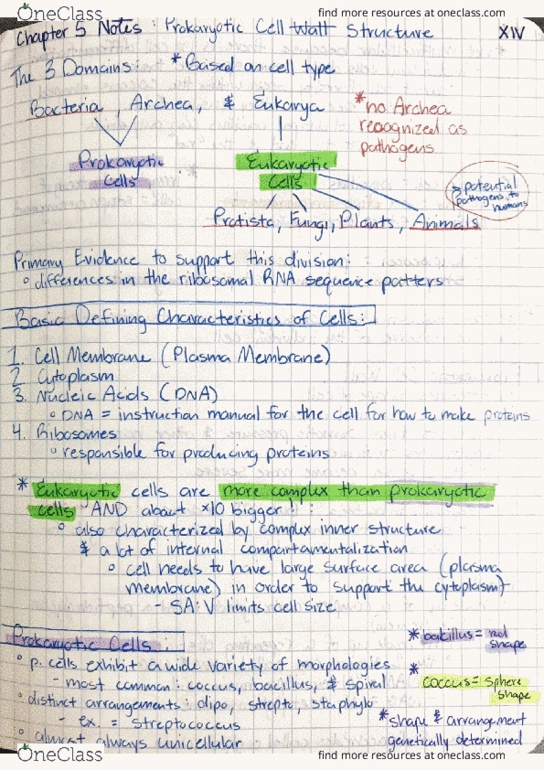 OneClass
find more resources at oneclass.com
Chapter 5 Notes: Prokaryotic Cell Wall Structure XIV
The 3 Domains: *Based on cell type
Bacteria, Archea, & Eukarya
*no Archea
recognized as
pathogens
Prokaryotic
Cells
Eukaryotic
Cells
→ potential
pathogens to
humans
Protista, Fungi, Plants, Animals
Primary Evidence to support this division:
° differences in the ribosomal RNA sequence patters
Basic Defining Characteristics of Cells:
1. Cell Membrane (Plasma Membrane)
2. Cytoplasm
3. Nucleic Acids (DNA)
° DNA = instruction manual for the cell for how to make proteins
4. Ribosomes
° responsible for producing proteins
* Eukaryotic cells are more complex than prokaryotic
cells AND about ×10 bigger!!
° also characterized by complex inner structure
& a lot of internal compartamentalization
° cell needs to have large surface area (plasma
membrane) in order to support the cytoplasm
- SA:V limits cell size
Prokaryotic Cells
* bacillus = rod
shape
° p. cells exhibit a wide variety of morphologies
- most common: coccus, bacillus, & spiral
* coccus = sphere
shape
° distinct arrangements: dipo, strepto, staphylo
- ex. = streptococcus
° almost always unicellular
* shape & arrangement
genetically determined
OneClass
find more resources at oneclass.com